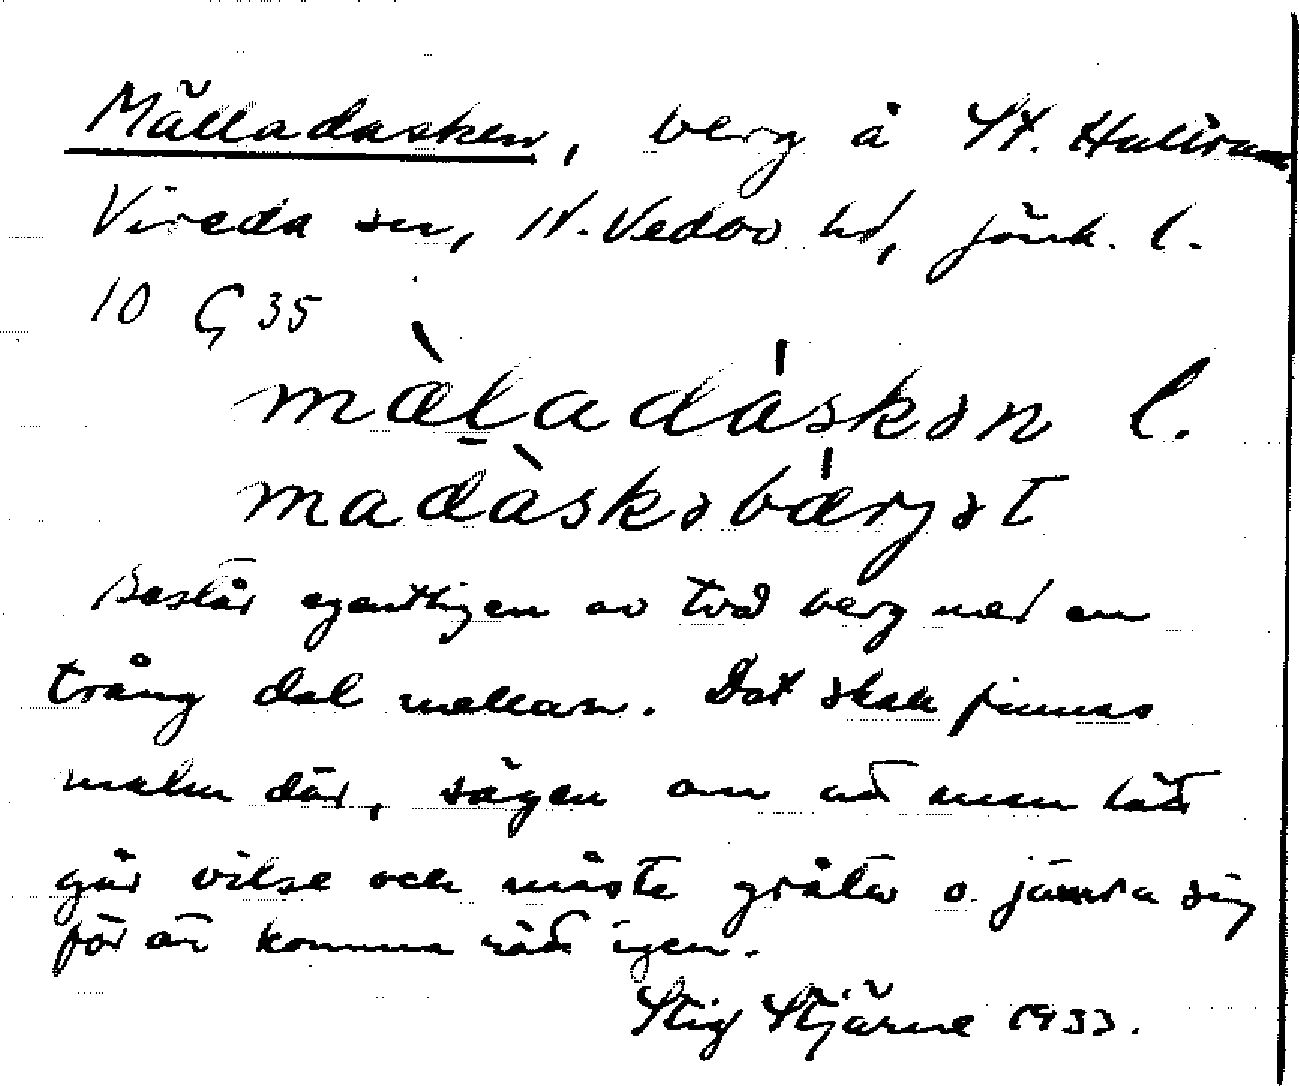 Mälladasken, berg å St. Hultrum
Vireda sn, N. Vedbo hd, Jönk. l.
10 Ç 35
mæ̀ladáskən l.
madàskəbærjət
Består egentligen av två berg med en
trång dal mellan. Det skall finnas
malm där, sägen om att man lätt
går vilse och måste gråta o. jämra sig
för att komma rätt igen.
Stig Stjärne 1933.